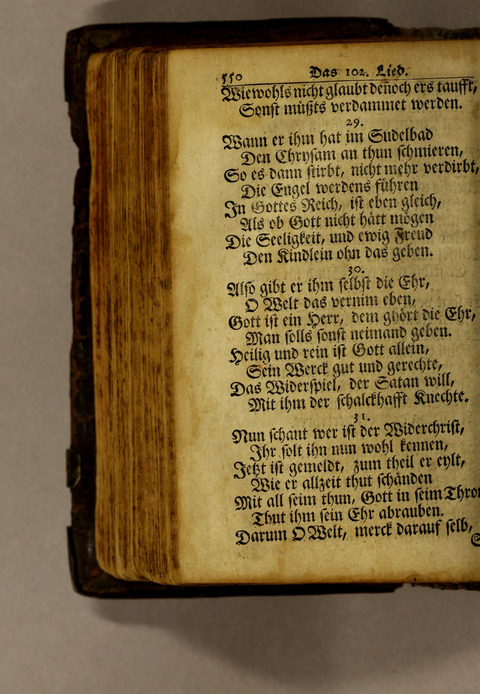 550 Das 102. Lied.
Wiewohls nicht glaubt deñoch ers taufft,
Sonst müßts verdammet werden.
29.
Wann er ihm hat im Sudelbad
Den Chrysam an thun schmieren,
So es dann stirbt, nicht mehr verdirbt,
Die Engel werdens führen
In Gottes Reich, ist eben gleich,
Als ob Gott nicht hätt mögen
Die Seeligkeit, und ewig Freud
Den Kindlein ohn das geben.
30.
Also gibt er ihm selbst die Ehr,
O Welt das vernim eben,
Gott ist ein Herr, dem ghört die Ehr,
Man solls sonst neimand geben.
Heilig und rein ist Gott allein,
Sein Werck gut und gerechte,
Das Widerspiel, der Satan will,
Mit ihm der schalckhafft Knechte.
31.
Nun schaut wer ist der Widerchrist,
Ihr solt ihn nun wohl kennen,
Jetzt ist gemeldt, zum theil er eylt,
Wie er allzeit thut schänden
Mit all seim thun, Gott in seim Thro
Thut ihm sein Ehr abrauben.
Darum O Welt, merck darauf selb,
S